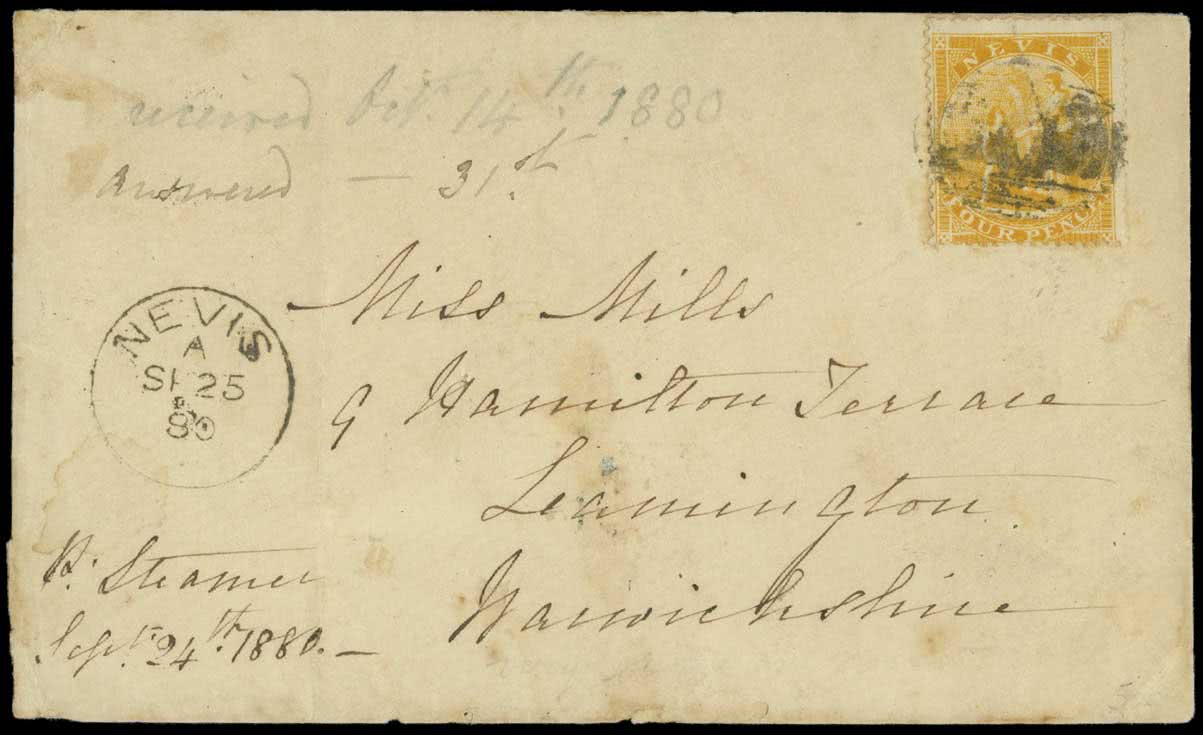 NEVIS
FOUR PENCE
received Oct. 14th. 1880
answered — 31st.
Miss Mills
9 Hamilton Terrace
Leamington
Warwickshire
NEVIS
A
SP 25
80
P. Steamer
Sept. 24th. 1880. —